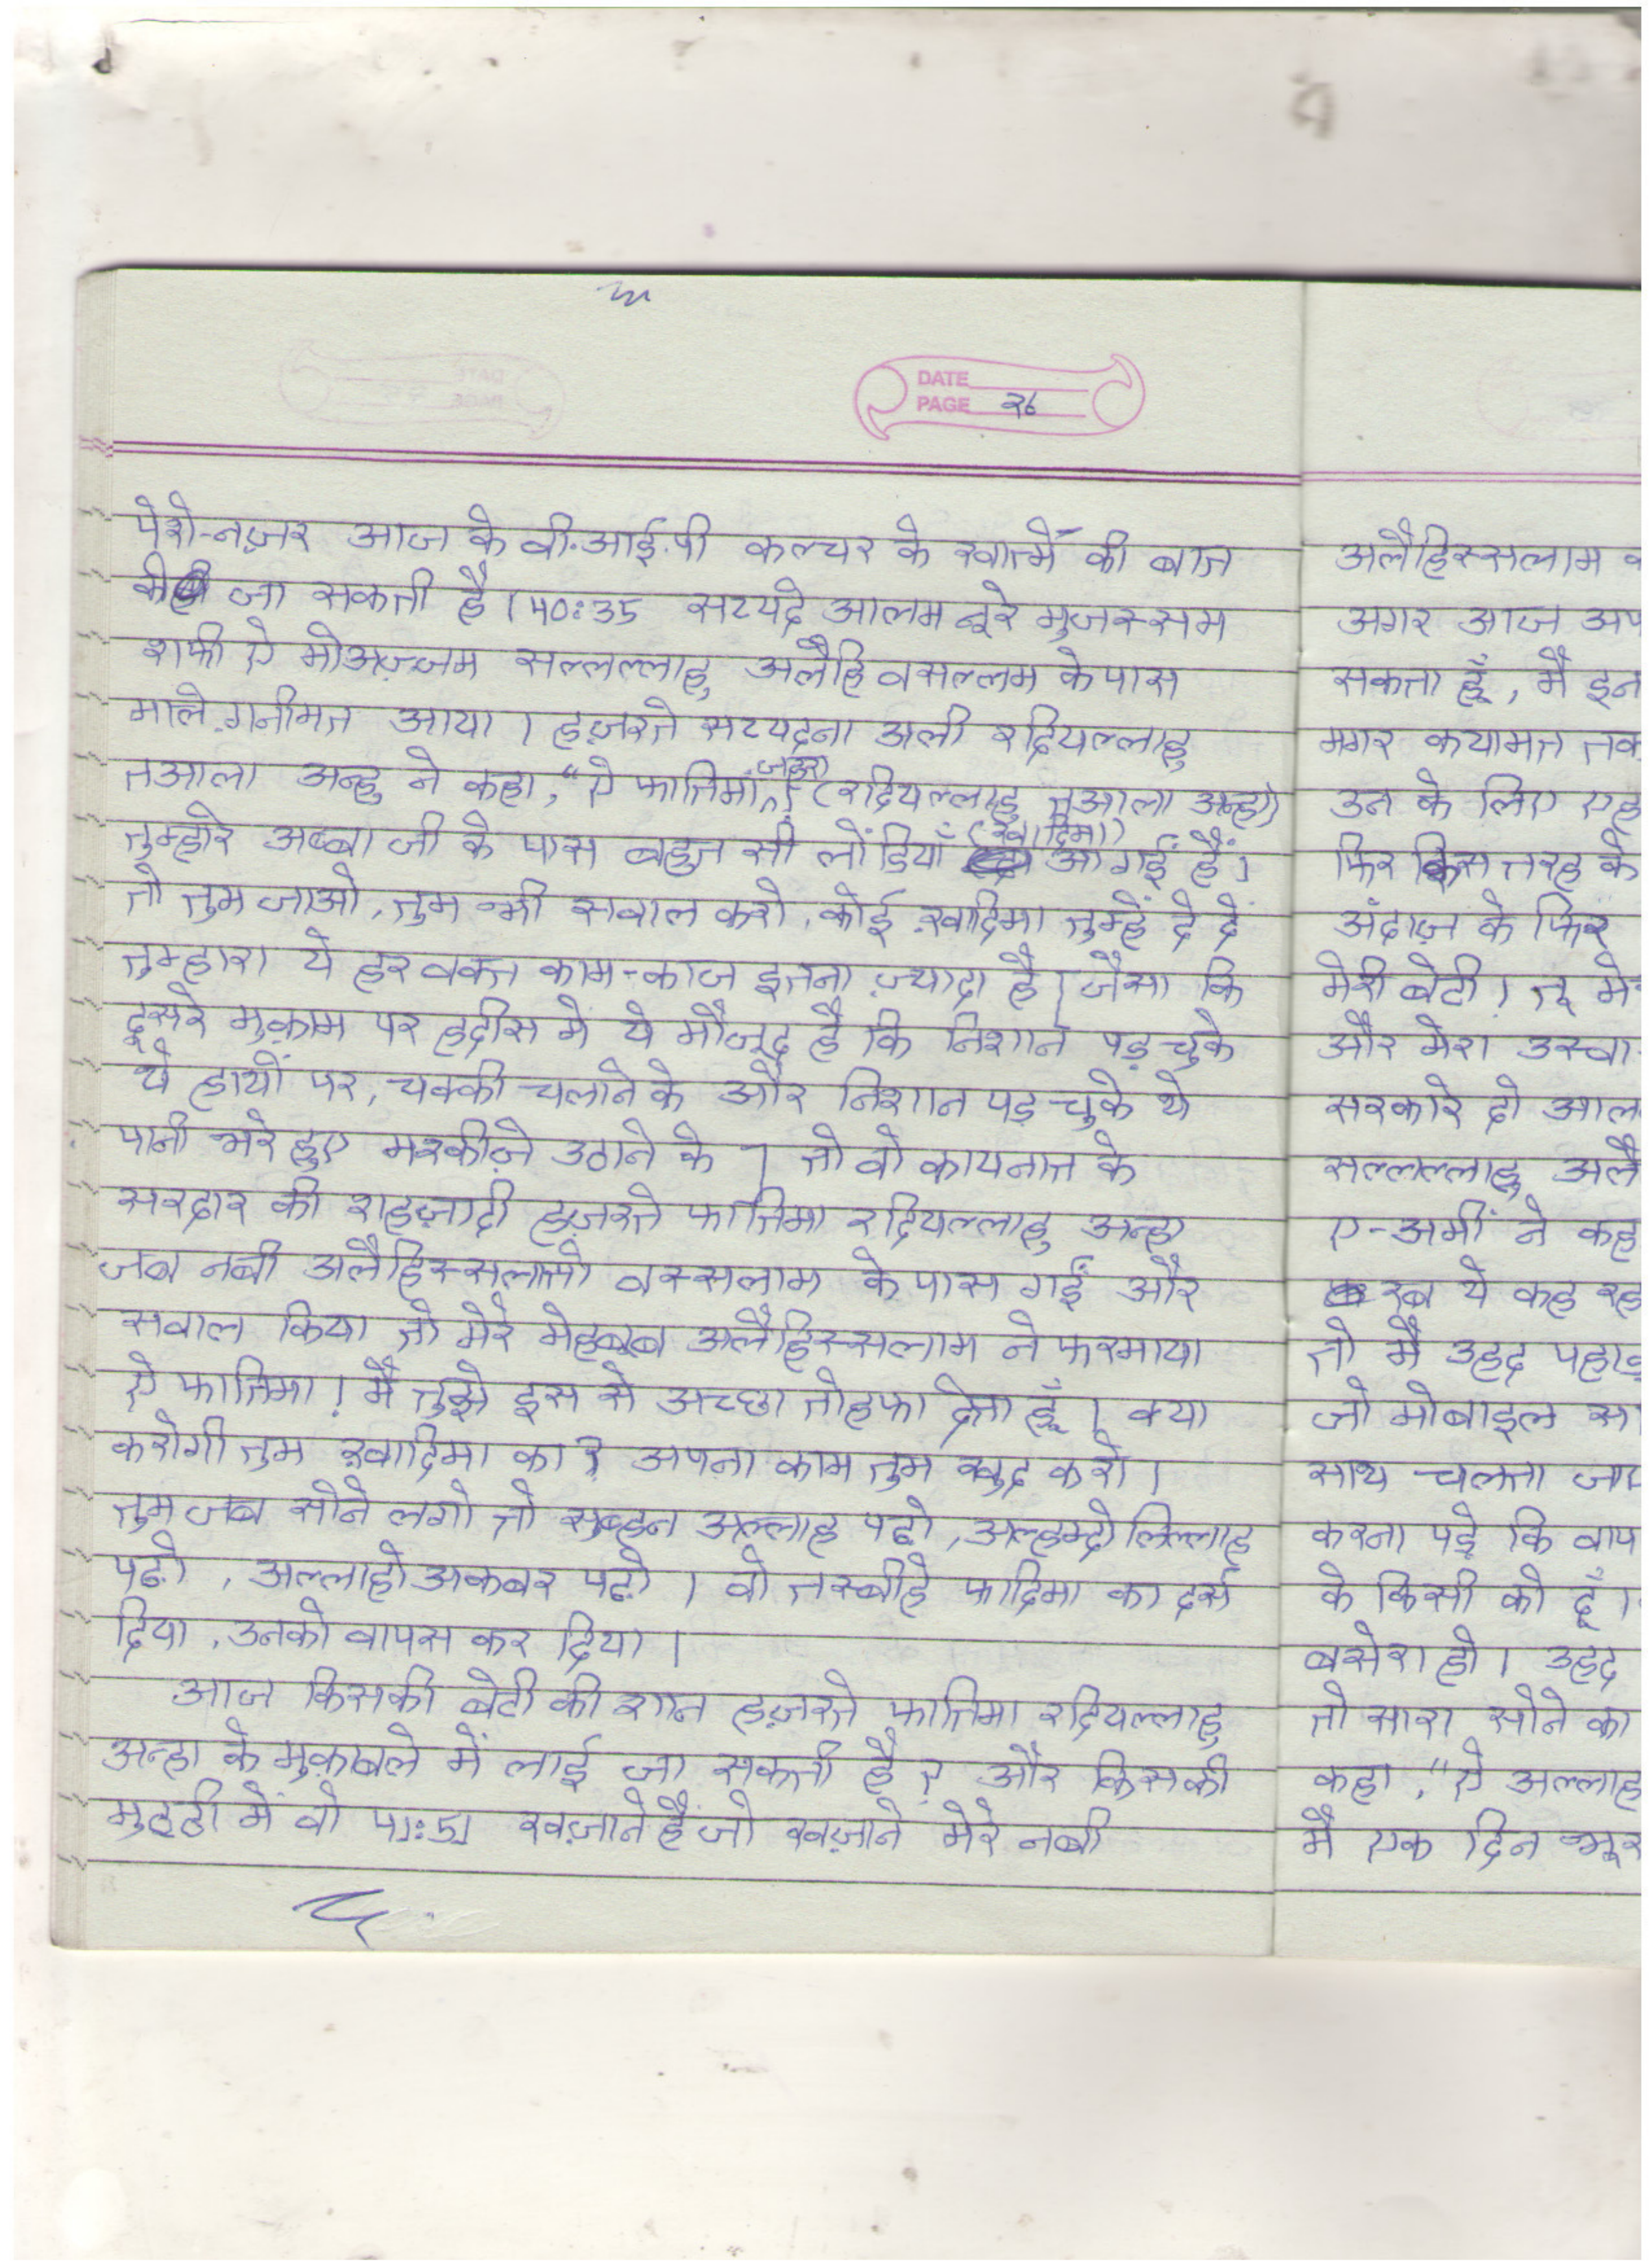 DATE
PAGE २६
पेशे-नज़र आज के वी.आई.पी कल्चर के खात्में की बात
की जा सकती है। 40:35 सय्यदे आलम नूरे मुजस्सम
शफी ऐ मोअज़्ज़म सल्लल्लाहु अलैहि वसल्लम के पास
माले ग़नीमत आया। हज़रते सय्यदना अली रदियल्लाहु
तआला अन्हु ने कहा, "ऐ फातिमा ज़हरा (रदियल्लाहु तआला अन्हा)
तुम्हारे अब्बा जी के पास बहुत सी लोंडियाँ (ख़ादिमा) आ गई हैं।
तो तुम जाओ, तुम भी सवाल करो, कोई ख़ादिमा तुम्हें दे दें
तुम्हारा ये हर वक्त काम-काज इतना ज़्यादा है। जैसा कि
दूसरे मुक़ाम पर हदीस मे ये मौजूद है कि निशान पड़ चुके
थे हाथों पर, चक्की चलाने के और निशान पड़ चुके थे
पानी भरे हुए मश्कीज़े उठाने के। तो वो कायनात के
सरदार की शहज़ादी हज़रते फातिमा रदियल्लाहु अन्हा
जब नबी अलैहिस्सलातो वस्सलाम के पास गईं और
सवाल किया तो मेरे मेहबूब अलैहिस्सलाम ने फरमाया
ऐ फातिमा! मैं तुझे इस से अच्छा तोहफा देता हूँ। क्या
करोगी तुम ख़ादिमा का? अपना काम तुम खुद करो।
तुम जब सोने लगो तो सुब्हन अल्लाह पढो, अल्हम्दो लिल्लाह
पढ़ो, अल्लाहो अकबर पढ़ो। वो तस्बीहे फादिमा का दर्स
दिया, उनको वापस कर दिया।
आज किसकी बेटी की शान हज़रते फातिमा रदियल्लाहु
अन्हा के मुक़ाबले में लाई जा सकती है? और किसकी
मुट्ठी में वो 41:51 खज़ाने हैं जो खज़ाने मेरे नबी
अलैहिस्सलाम
अगर आज अप
सकता हूँ, मैं इन
मगर कयामत तक
उन के लिए एह
फिर किस तरह के
अंदाज़ के फिर
मेरी बेटी। तू मे
और मेरा उस्वा
सरकारे दो आल
सल्लल्लाहु अलै
ए-अमीं ने कह
रब ये कह रह
तो मैं उहद पहाड़
जो मोबाइल सा
साथ चलता जा
करना पड़े कि वाप
के किसी को दूँ।
बसेरा हो। उहद
तो सारा सोने का
कहा, "ऐ अल्लाह
मै एक दिन भूर